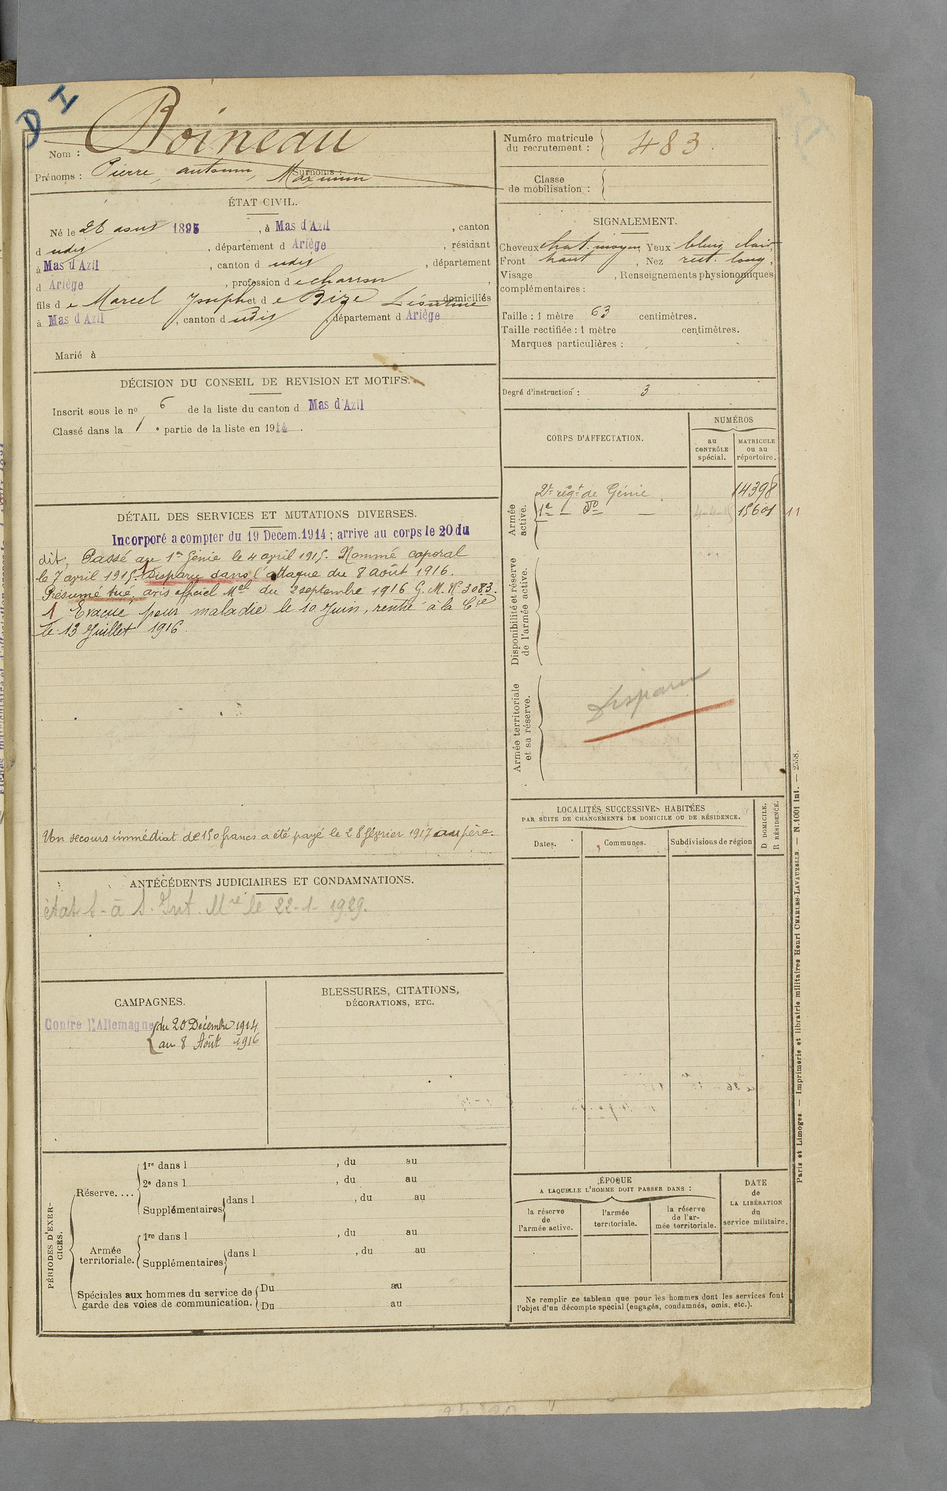 D I
Nom : Boineau
Prénoms : Pierre, antonin, Maximin Surnoms :
ÉTAT CIVIL.
Né le 26 aout 1895, à Mas d'Azil, canton
d udis, département d Ariège, résidant
à Mas d'Azil, canton d udis, département
d Ariège, profession d e charron,
fils d e Marcel Joseph et d e Bize Léontine domiciliés
à Mas d'Azil, canton d udis, département d Ariège
Marié à
DÉCISION DU CONSEIL DE REVISION ET MOTIFS.
Inscrit sous le no 6 de la liste du canton d Mas d'Azil
Classé dans la 1e partie de la liste en 1914.
DÉTAIL DES SERVICES ET MUTATIONS DIVERSES.
Incorporé a compter du 19 Decem.1914 ; arrive au corps le 20 du
dit, Passé au 1er Génie le 4 april 1915. Nommé caporal
le 7 avril 1915. Disparu dans l'attaque du 8 août 1916.
Présumé tué, avis officiel Mel du 2 septembre 1916 G. M. No 3083.
1 Evacué pour maladie le 10 Juin, rentré à la Cie
le 13 Juillet 1916.
Un secours immédiat de 150 francs a été payé le 28 février 1917 au père.
ANTÉCÉDENTS JUDICIAIRES ET CONDAMNATIONS.
état 6 - à S. Int. Mre le 22-1-1929.
CAMPAGNES.
Contre l'Allemagne du 20 Décembre 1914
au 8 Août 1916
BLESSURES, CITATIONS,
DÉCORATIONS, ETC.
PÉRIODES D'EXER-
CICES.
Réserve....
1re dans l , du au
2e dans l , du au
Supplémentaires dans l , du au
Armée
territoriale.
1re dans l , du au
Supplémentaires dans l , du au
Spéciales aux hommes du service de
garde des voies de communication.
Du au
Du au
Numéro matricule
du recrutement : 483
Classe
de mobilisation :
SIGNALEMENT.
Cheveux chat. moyen Yeux bleu clair
Front haut, Nez rect. long,
Visage , Renseignements physionomiques
complémentaires :
Taille : 1 mètre 63 centimètres.
Taille rectifiée : 1 mètre centimètres.
Marques particulières :
Degré d'instruction : 3
CORPS D'AFFECTATION.
NUMÉROS
au
CONTRÔLE
spécial.
MATRICULE
ou au
répertoire.
Armée
active.
2e régt de Génie 14398
1er — do — 15601 11
Disponibilité et réserve
de l'armée active.
Armée territoriale
et sa réserve.
Disparu
LOCALITÉS SUCCESSIVES HABITÉES
PAR SUITE DE CHANGEMENTS DE DOMICILE OU DE RÉSIDENCE.
D DOMICILE.
R RÉSIDENCE.
Dates.
Communes.
Subdivisions de région
ÉPOQUE
A LAQUELLE L'HOMME DOIT PASSER DANS :
la réserve
de
l'armée active.
l'armée
territoriale.
la réserve
de l'ar-
mée territoriale.
DATE
de
LA LIBÉRATION
du
service militaire.
Ne remplir ce tableau que pour les hommes dont les services font
l'objet d'un décompte spécial (engagés, condamnés, omis, etc.).
Paris et Limoges. — Imprimerie et librairie militaires Henri CHARLES-LAVAUZELLE. — N. 1001 int. — 258.